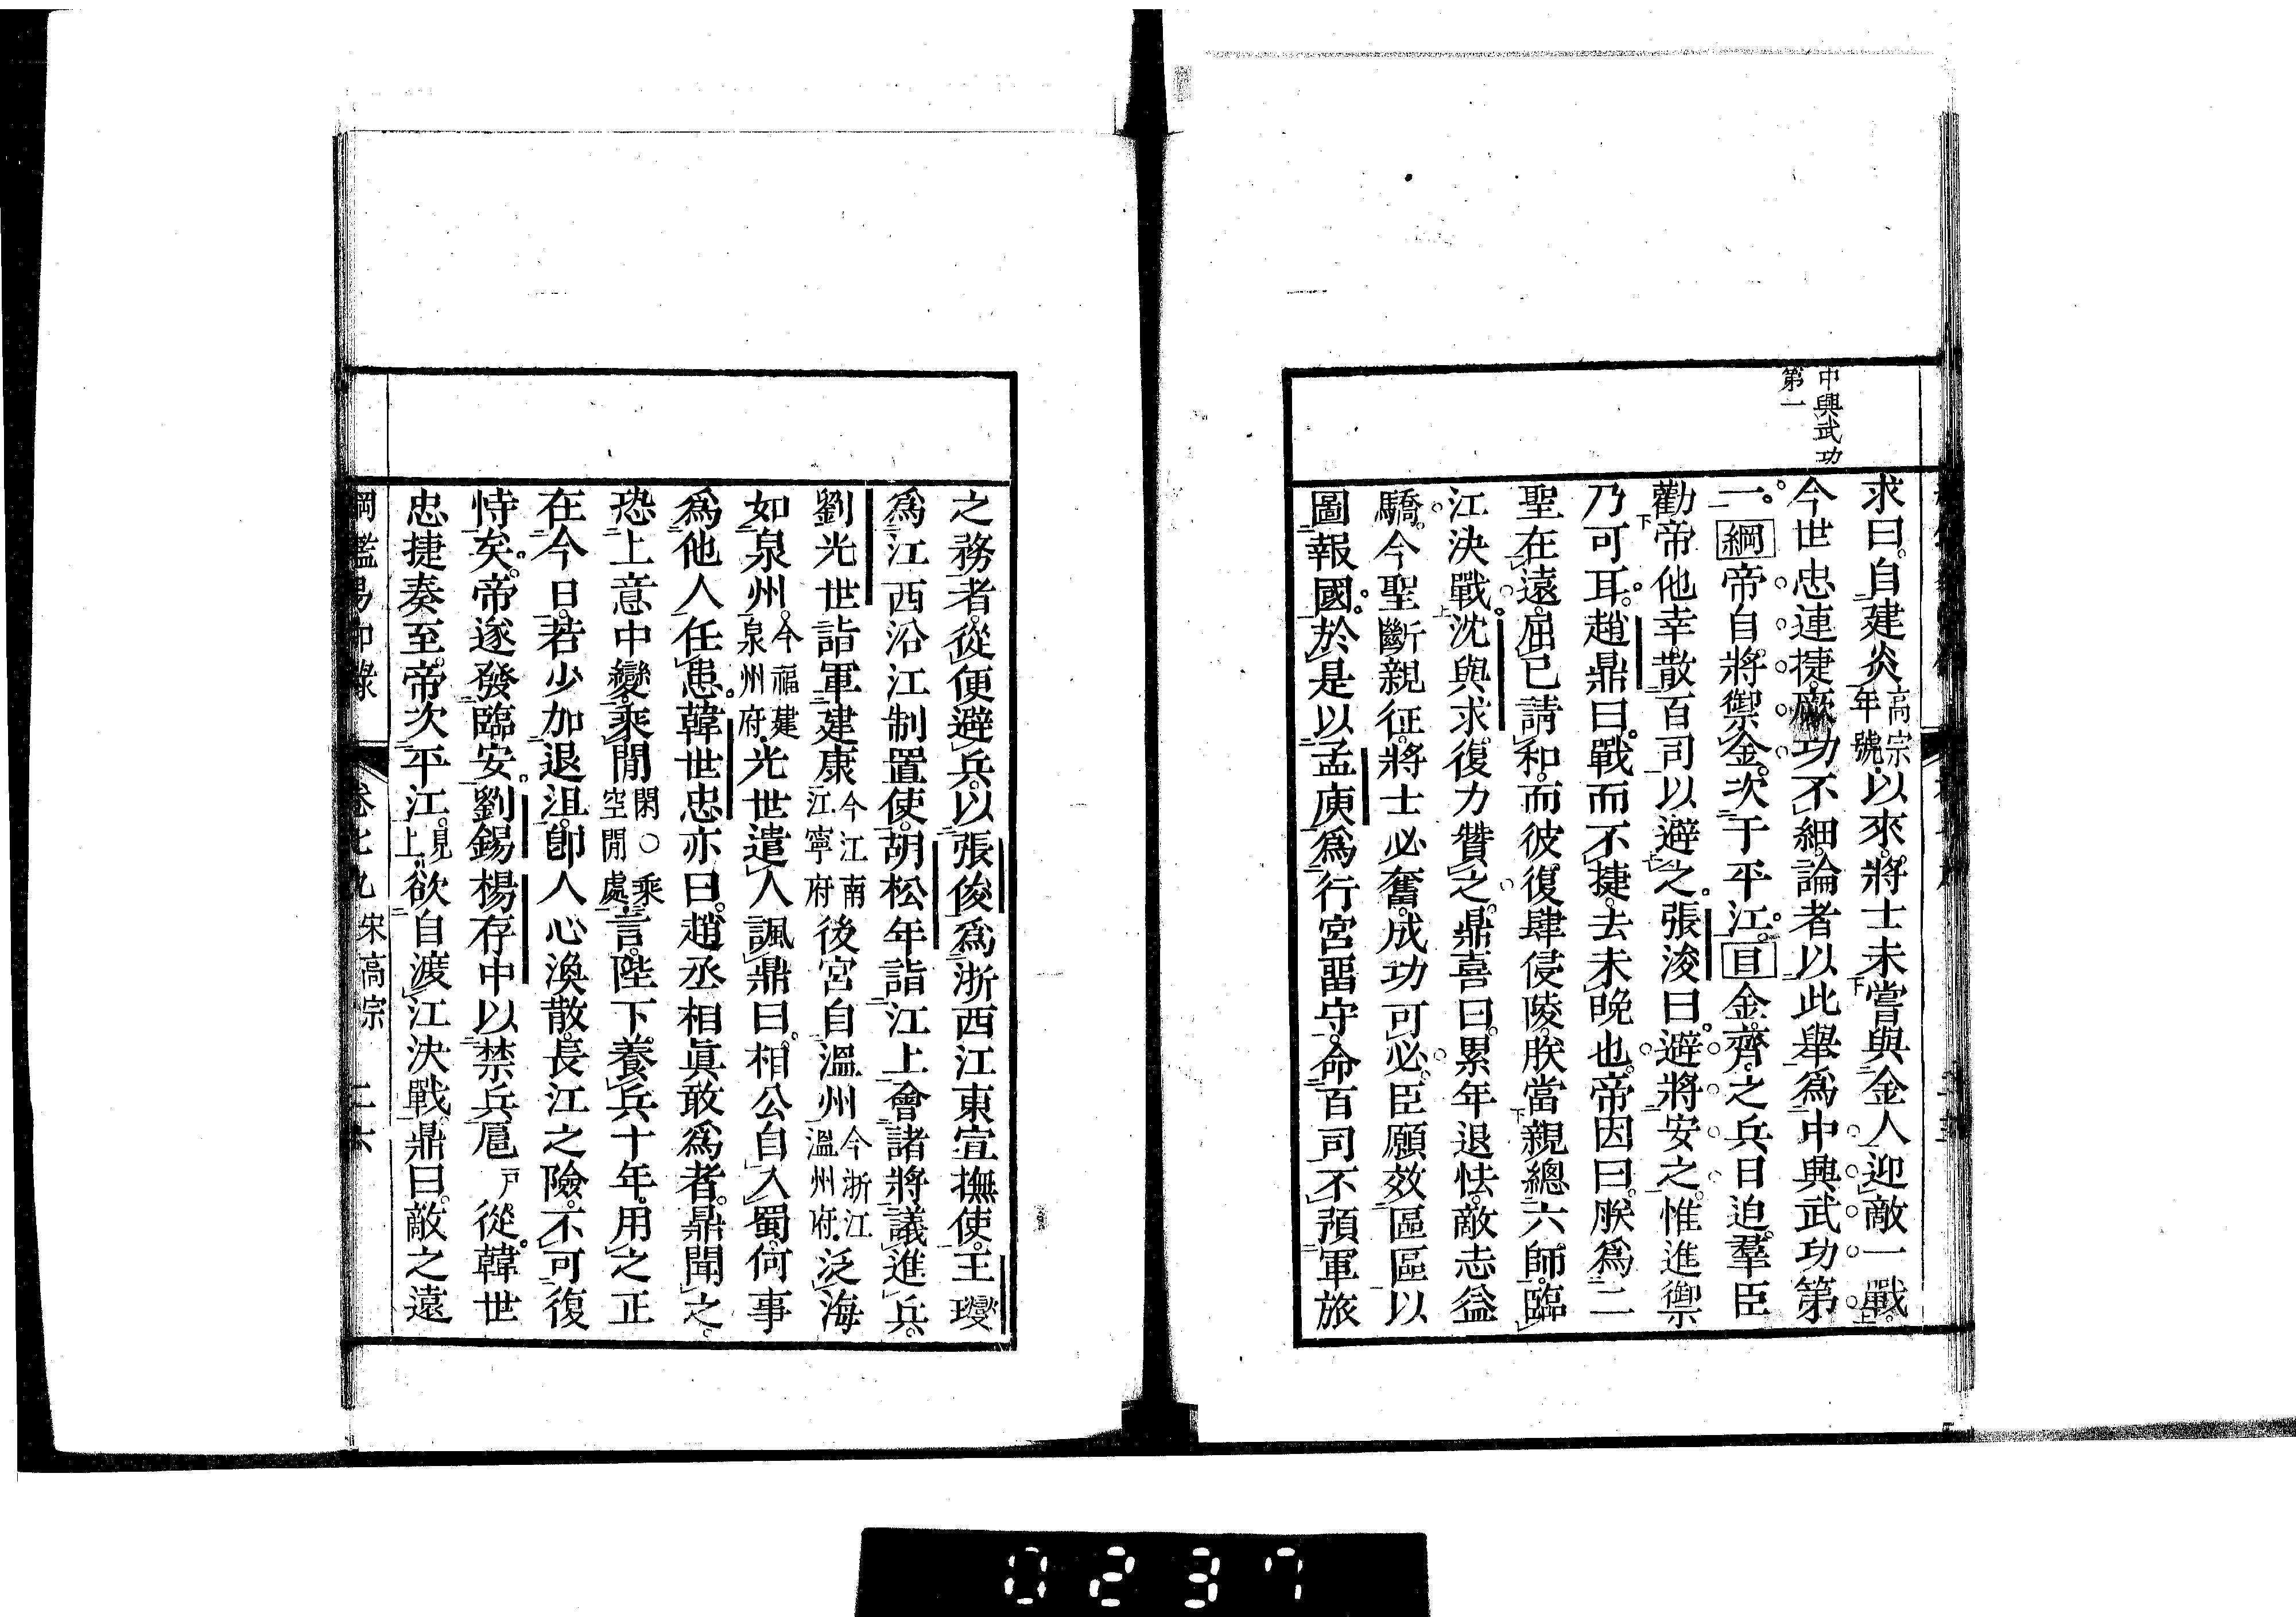 中興武功
第一
求曰自建炎高宗年號以來將士未嘗與金人迎敵一戰
今世忠連捷厥功不細論者以此舉爲中興武功第
一綱帝自將禦金次于平江目金齊之兵日迫羣臣
勸帝他幸散百司以避之張浚曰避將安之惟進禦
乃可耳趙鼎曰戰而不捷去未晚也帝因曰朕爲二
聖在遠屈已請和而彼復肆侵陵朕當親總六師臨
江決戰沈與求復力贊之鼎喜曰累年退怯敵志益
驕今聖斷親征將士必奮成功可必臣願效區區以
圖報國於是以孟庾爲行宮畱守命百司不預軍旅
之務者從便避兵以張俊爲浙西江東宣撫使王𤫉
爲江西沿江制置使胡松年詣江上會諸將議進兵
劉光世詣軍建康今江南江寧府後宮自溫州今浙江溫州府泛海
如泉州今福建泉州府光世遣人諷鼎曰相公自入蜀何事
爲他人任患韓世忠亦曰趙丞相眞敢爲者鼎聞之
恐上意中變乘閒閑○乘空閒處言陛下養兵十年用之正
在今日若少加退沮卽人心渙散長江之險不可復
恃矣帝遂發臨安劉錫楊存中以禁兵扈戸從韓世
忠捷奏至帝次平江見上欲自渡江決戰鼎曰敵之遠
綱鑑易知錄 卷七九 宋高宗 二六
0237